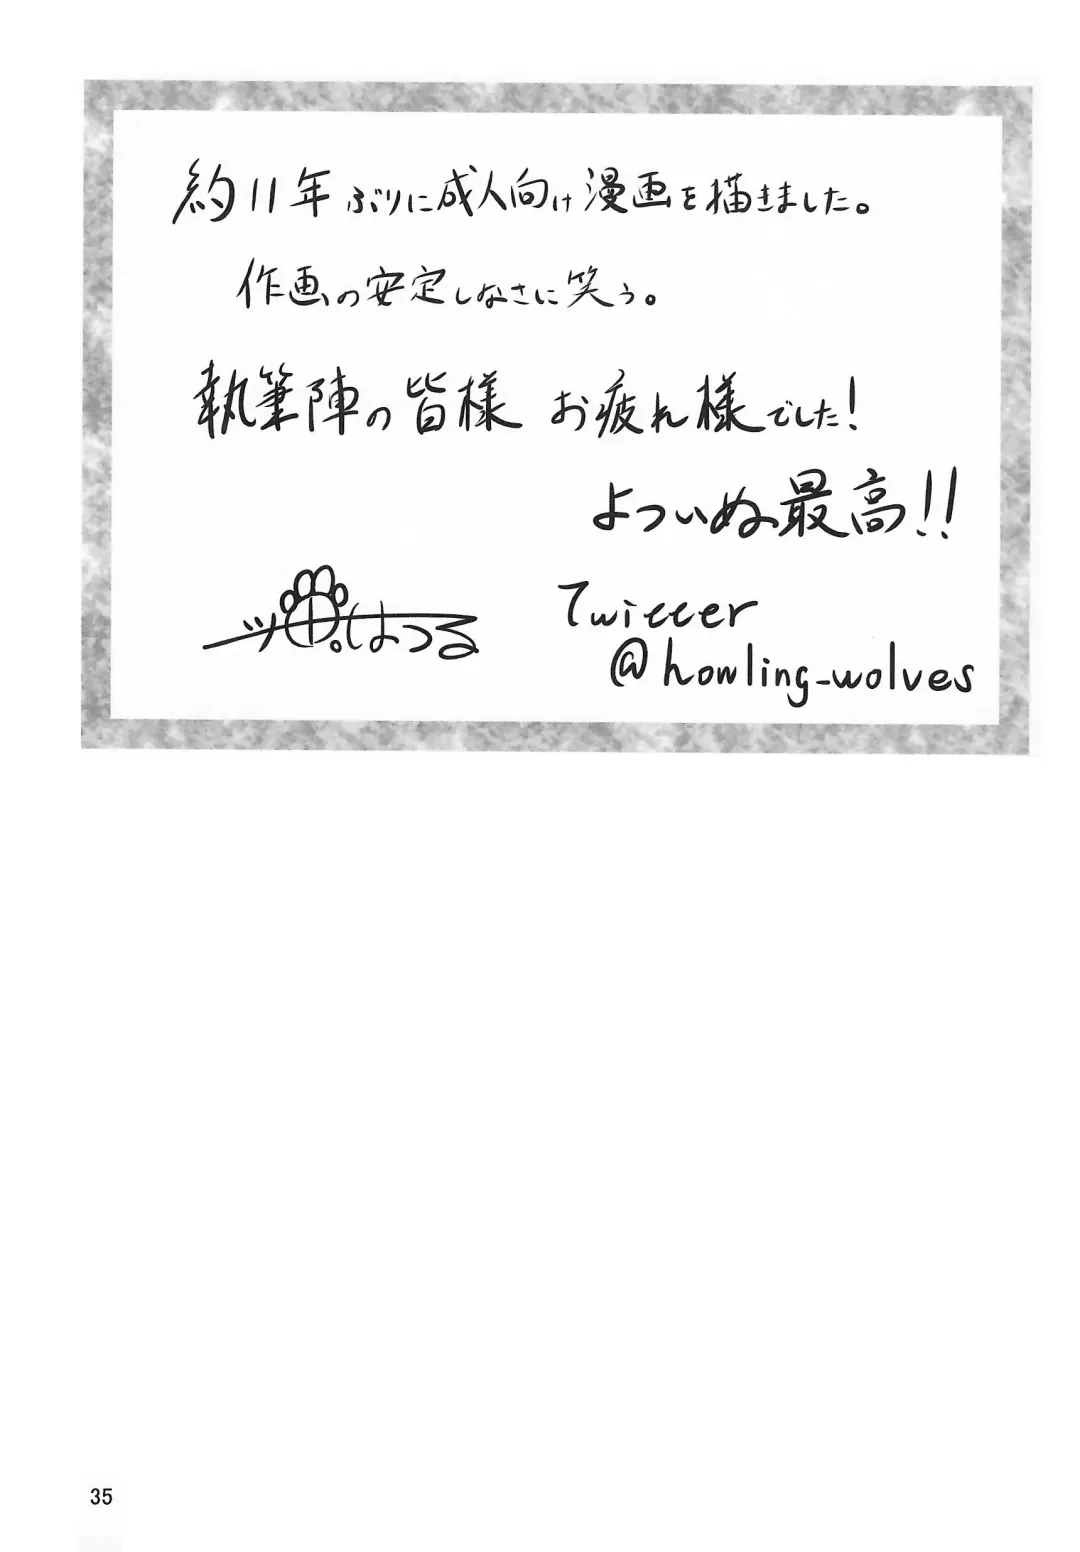 約11年ぶりに成人向け漫画を描きました。
作画の安定しなさに笑う。
執筆陣の皆様 お疲れ様でした!
よついぬ最高!!
はつる
Twitter
@howling_wolves
35